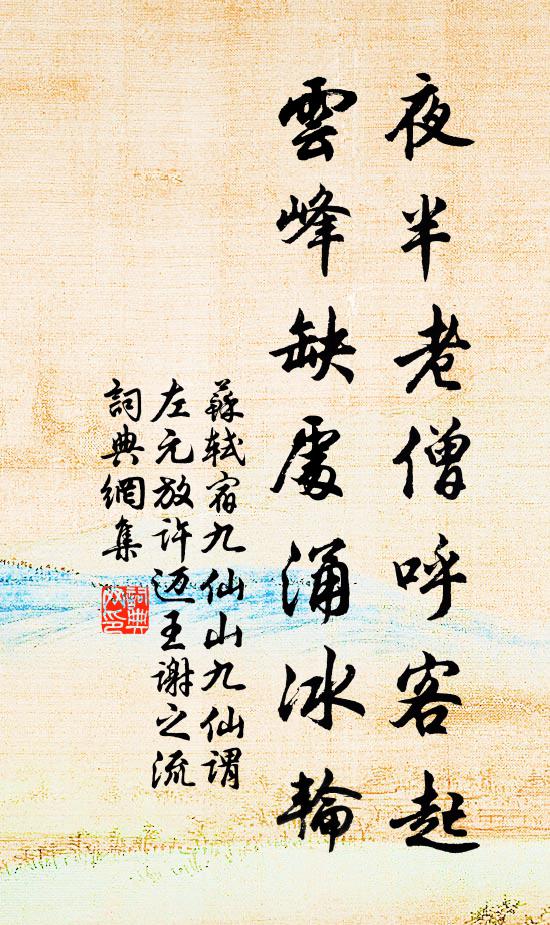 夜半老僧呼客起
雲峰缺處涌冰輪
蘇軾宿九仙山九仙謂
左元放許邁王謝之流
詞典網集